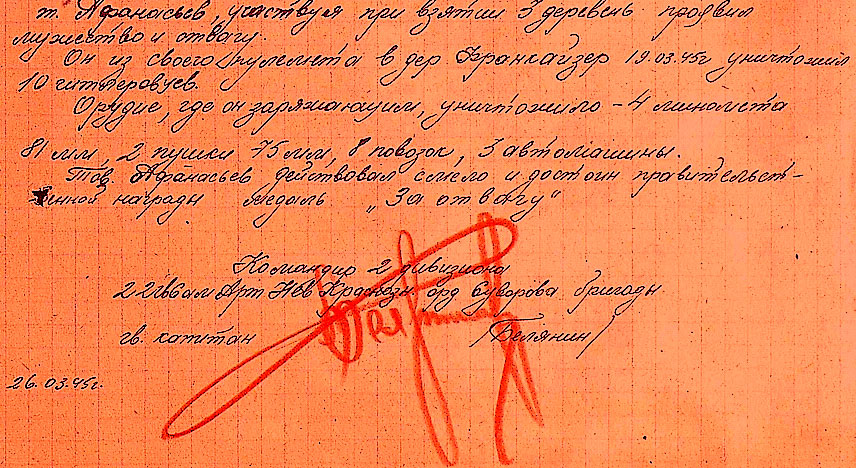 т. Афанасьев, участвуя при взятии 3 деревень проявил
мужество и отвагу.
Он из своего пулемёта в дер Франкайзер 19.03.45г уничтожил
10 гитлеровцев.
Орудие, где он заряжающим, уничтожило - 4 миномета
81 мм, 2 пушки 75 мм, 8 повозок, 3 автомашины.
Тов. Афанасьев действовал смело и достоин правительст-
венной награды медаль „За отвагу"
Командир 2 дивизиона
22 гв Сам Арт Нов Краснозн орд Суворова бригады
гв. капитан /Белянин/
26.03.45г.